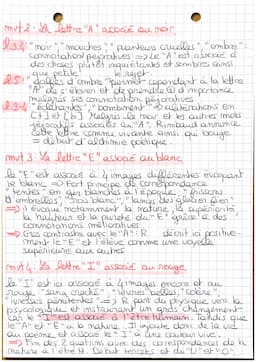 mvt 2 : La lettre "A" associé au noir
"noir" "mouches" "puanteurs cruelles" "ombre" :
connotation péjoratives => Le "A" est associé à
des choses plutôt inquiétantes et sombres ainsi
que le sujet
"golfes d'ombre" permet cependant à la lettre
"A" de s'élever et de prendre d'importance
malgré ses connotations péjoratives
"éclatantes", "bombinent" => allitérations en
[t] et [b] Malgré le noir et les autres mots
péjoratifs associés au "A", Rimbaud annonce
cette lettre comme vivante ainsi qui bouge
= début d'alchimie poétique.
mvt 3 : La lettre "E" associé au blanc
Le "E" est associé à 4 images différentes évoquant
le blanc => Fort principe de correspondance
"tentes" en blanches à l'époque, "frissons
d'ombelles", "rois blancs", "lances des glaciers fiers"
=> Il évoque notamment la nature, la supériorité
la hauteur et la pureté du "E" grâce à des
connotations mélioratives
=> Gros contraste avec le "A" : R décrit ici positive-
ment le "E" et l'élève comme une voyelle
supérieure aux autres
mvt 4 : La lettre "I" associé au rouge
Le "I" est ici associé à 4 images encore et au
rouge : "sang craché", "lèvres belles", "colère",
"ivresses pénitentes" => R part du physique vers la
psychologie et instaurant un grand changement
car le "I" est associé à l'être humain. Tandis que
le "A" et "E" à la nature. Il ajoute donc de la vie
au poème et associe le "I" à une couleur vive.
=> Fin des 2 quatrains avec des correspondances de la
nature à l'être H. Début tercets et de "U" et "O"